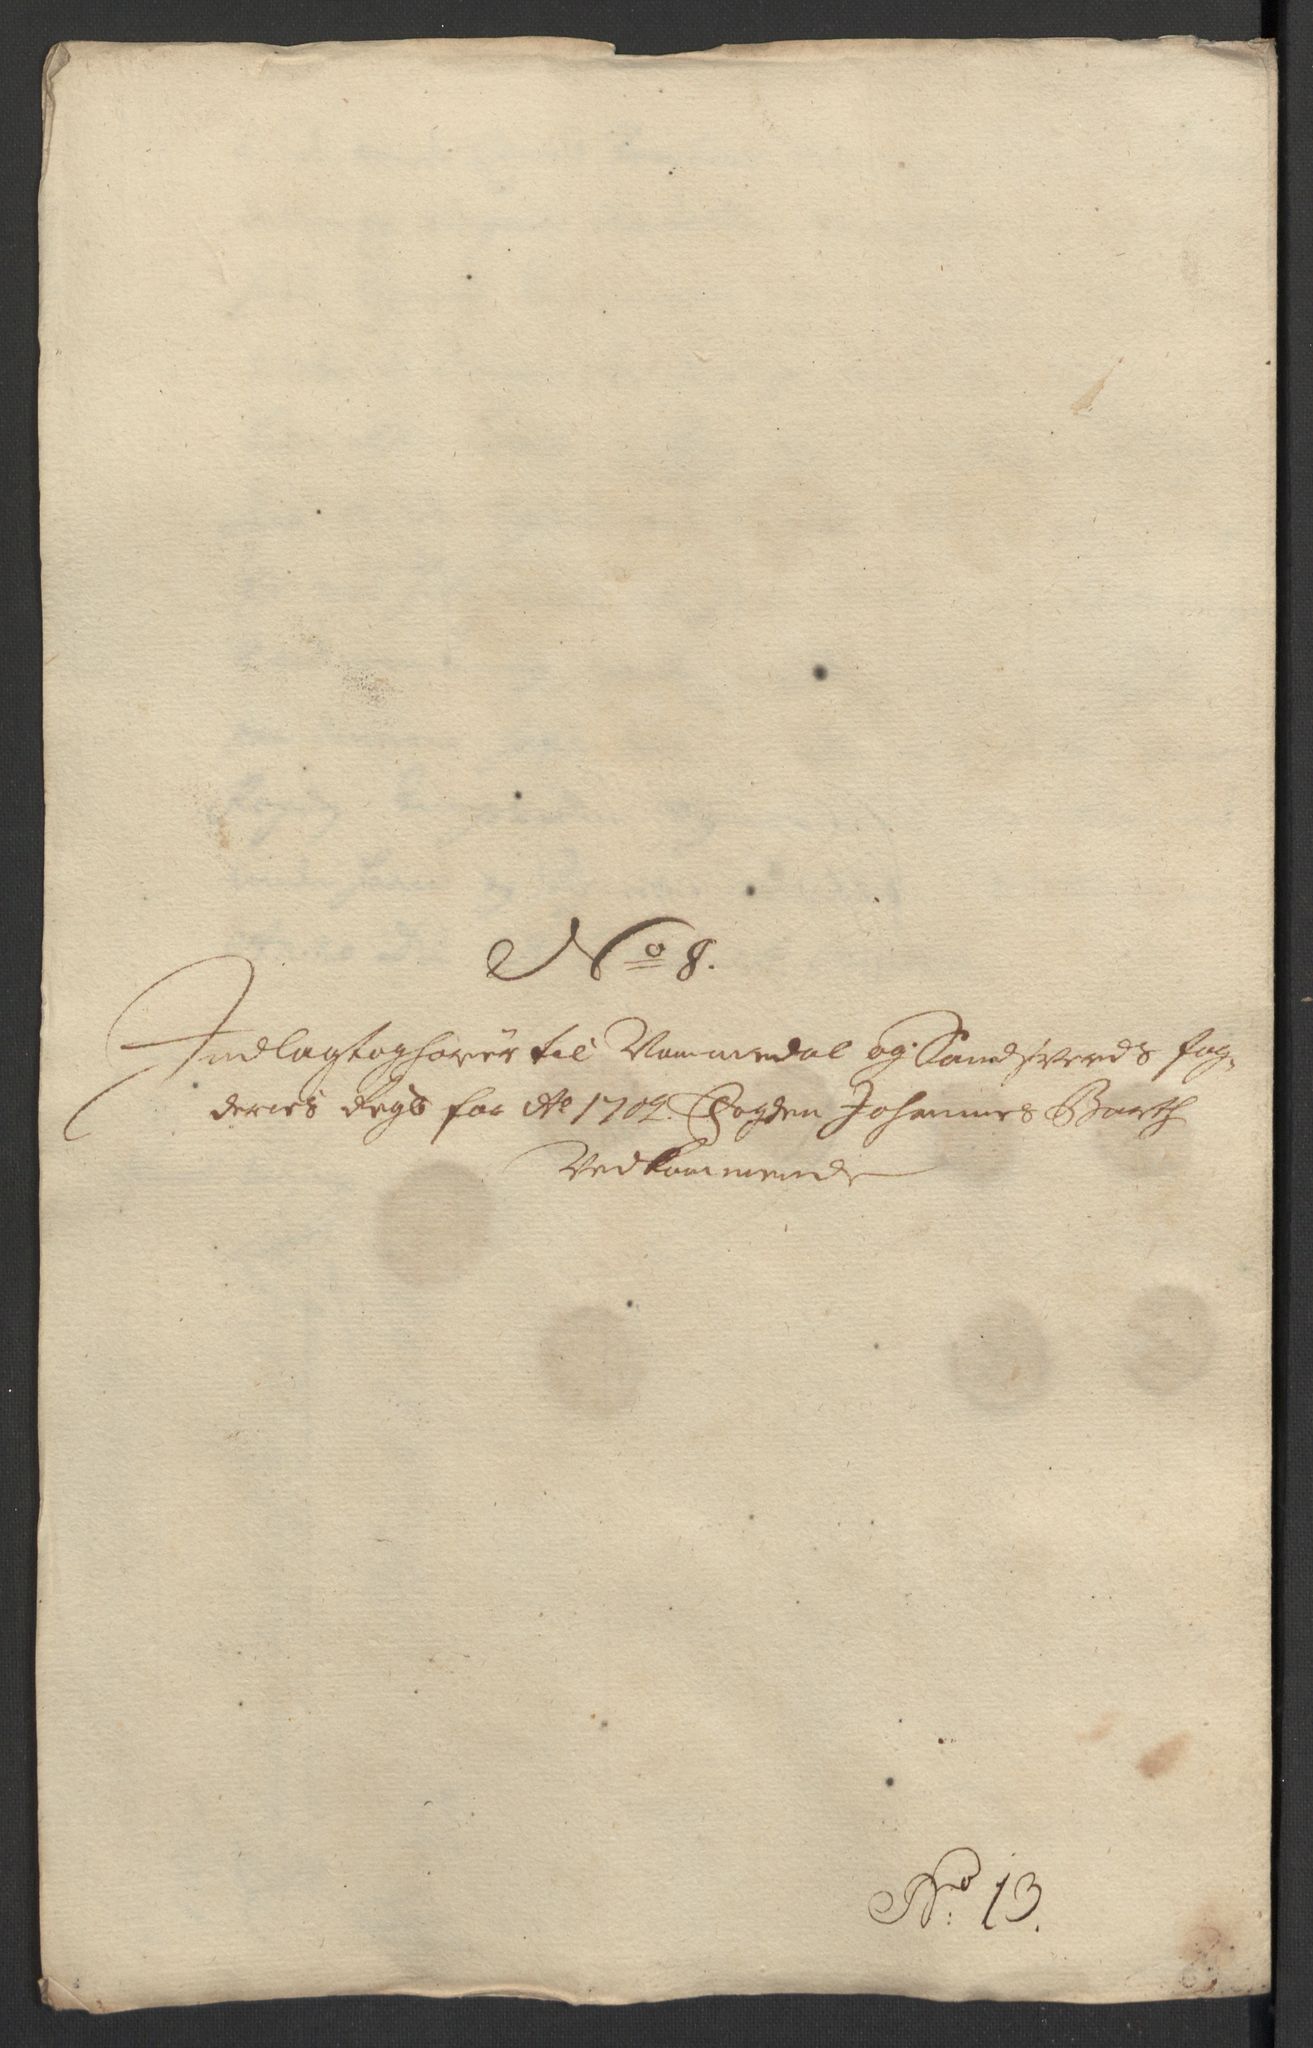 No 8.
Indlagt og hører til Nommedal og Sandsverds fog-
deries Regsb for Ao 1709. Fogden Johannes Barth
Vedkommende
No: 13.